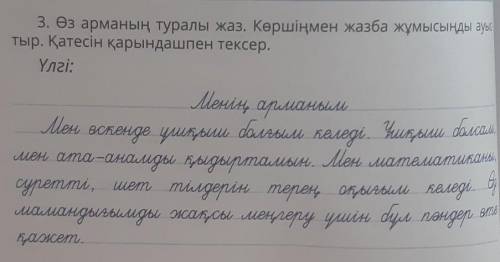 3. Өз арманың туралы жаз. Көршіңмен жазба жұмысыңды ауыс
тыр. Қатесін қарындашпен тексер.
Үлгі:
Менің арманым
Мен өскенде ұшқыш болғым келеді. Ұшқыш болсам,
мен ата-анамды қыдыртамын. Мен математиканы
суретті, шет тілдерін терең оқығым келеді. Ө
мамандығымды жақсы меңгеру үшін бұл пәндер өте
қажет.